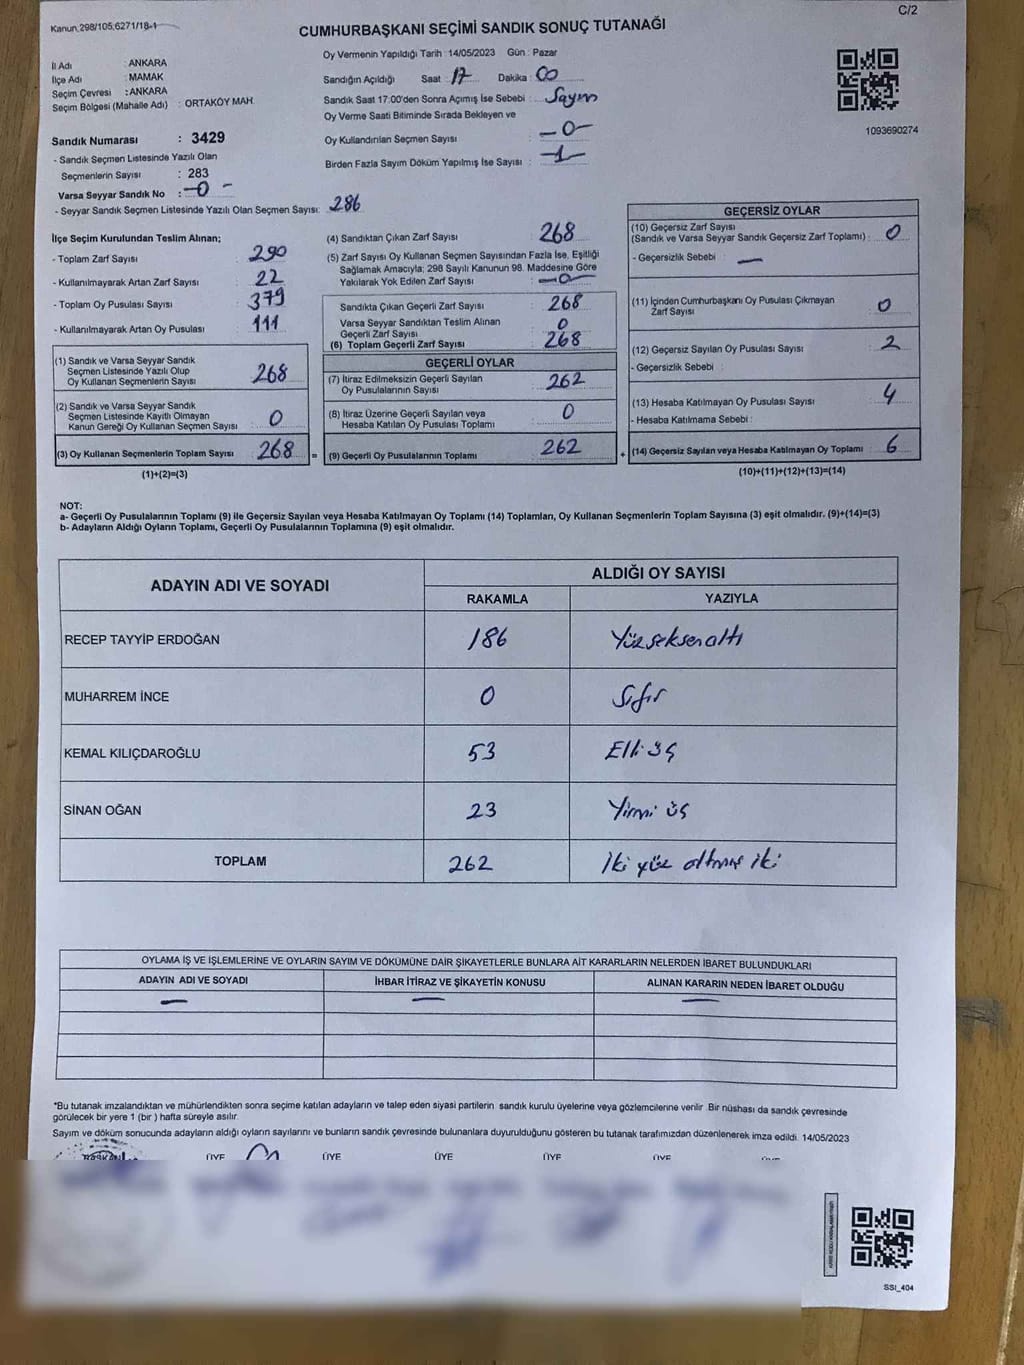 Kanun.298/105,6271/18-1
C/2
CUMHURBAŞKANI SEÇİMİ SANDIK SONUÇ TUTANAĞI
İl Adı : ANKARA
İlçe Adı : MAMAK
Seçim Çevresi : ANKARA
Seçim Bölgesi (Mahalle Adı) : ORTAKÖY MAH.
Oy Vermenin Yapıldığı Tarih : 14/05/2023 Gün : Pazar
Sandığın Açıldığı Saat : 17 Dakika : 00
Sandık Saat 17:00'den Sonra Açımış İse Sebebi : Sayım
Oy Verme Saati Bitiminde Sırada Bekleyen ve
Oy Kullandırılan Seçmen Sayısı : -0-
Birden Fazla Sayım Döküm Yapılmış İse Sayısı : -1-
1093690274
Sandık Numarası : 3429
- Sandık Seçmen Listesinde Yazılı Olan
Seçmenlerin Sayısı : 283
Varsa Seyyar Sandık No : -0-
- Seyyar Sandık Seçmen Listesinde Yazılı Olan Seçmen Sayısı: 286
İlçe Seçim Kurulundan Teslim Alınan;
- Toplam Zarf Sayısı : 290
- Kullanılmayarak Artan Zarf Sayısı : 22
- Toplam Oy Pusulası Sayısı : 379
- Kullanılmayarak Artan Oy Pusulası : 111
(1) Sandık ve Varsa Seyyar Sandık
Seçmen Listesinde Yazılı Olup
Oy Kullanan Seçmenlerin Sayısı : 268
(2) Sandık ve Varsa Seyyar Sandık
Seçmen Listesinde Kayıtlı Olmayan
Kanun Gereği Oy Kullanan Seçmen Sayısı : 0
(3) Oy Kullanan Seçmenlerin Toplam Sayısı : 268
(1)+(2)=(3)
(4) Sandıktan Çıkan Zarf Sayısı : 268
(5) Zarf Sayısı Oy Kullanan Seçmen Sayısından Fazla İse, Eşitliği
Sağlamak Amacıyla; 298 Sayılı Kanunun 98. Maddesine Göre
Yakılarak Yok Edilen Zarf Sayısı : -0-
Sandıkta Çıkan Geçerli Zarf Sayısı : 268
Varsa Seyyar Sandıktan Teslim Alınan
Geçerli Zarf Sayısı : 0
(6) Toplam Geçerli Zarf Sayısı : 268
GEÇERLİ OYLAR
(7) İtiraz Edilmeksizin Geçerli Sayılan
Oy Pusulalarının Sayısı : 262
(8) İtiraz Üzerine Geçerli Sayılan veya
Hesaba Katılan Oy Pusulası Toplamı : 0
= (9) Geçerli Oy Pusulalarının Toplamı : 262
GEÇERSİZ OYLAR
(10) Geçersiz Zarf Sayısı
(Sandık ve Varsa Seyyar Sandık Geçersiz Zarf Toplamı) : 0
- Geçersizlik Sebebi : —
(11) İçinden Cumhurbaşkanı Oy Pusulası Çıkmayan
Zarf Sayısı : 0
(12) Geçersiz Sayılan Oy Pusulası Sayısı : 2
- Geçersizlik Sebebi :
(13) Hesaba Katılmayan Oy Pusulası Sayısı : 4
- Hesaba Katılmama Sebebi :
+ (14) Geçersiz Sayılan veya Hesaba Katılmayan Oy Toplamı : 6
(10)+(11)+(12)+(13)=(14)
NOT:
a- Geçerli Oy Pusulalarının Toplamı (9) ile Geçersiz Sayılan veya Hesaba Katılmayan Oy Toplamı (14) Toplamları, Oy Kullanan Seçmenlerin Toplam Sayısına (3) eşit olmalıdır. (9)+(14)=(3)
b- Adayların Aldığı Oyların Toplamı, Geçerli Oy Pusulalarının Toplamına (9) eşit olmalıdır.
ADAYIN ADI VE SOYADI ALDIĞI OY SAYISI
RAKAMLA YAZIYLA
RECEP TAYYİP ERDOĞAN 186 Yüzseksenaltı
MUHARREM İNCE 0 Sıfır
KEMAL KILIÇDAROĞLU 53 Elli üç
SİNAN OĞAN 23 Yirmi üç
TOPLAM 262 İki yüz altmış iki
OYLAMA İŞ VE İŞLEMLERİNE VE OYLARIN SAYIM VE DÖKÜMÜNE DAİR ŞİKAYETLERLE BUNLARA AİT KARARLARIN NELERDEN İBARET BULUNDUKLARI
ADAYIN ADI VE SOYADI İHBAR İTİRAZ VE ŞİKAYETİN KONUSU ALINAN KARARIN NEDEN İBARET OLDUĞU
— — —
*Bu tutanak imzalandıktan ve mühürlendikten sonra seçime katılan adayların ve talep eden siyasi partilerin sandık kurulu üyelerine veya gözlemcilerine verilir. Bir nüshası da sandık çevresinde
görülecek bir yere 1 (bir ) hafta süreyle asılır.
Sayım ve döküm sonucunda adayların aldığı oyların sayılarını ve bunların sandık çevresinde bulunanlara duyurulduğunu gösteren bu tutanak tarafımızdan düzenlenerek imza edildi. 14/05/2023
BAŞKAN ÜYE ÜYE ÜYE ÜYE ÜYE
SSI_404